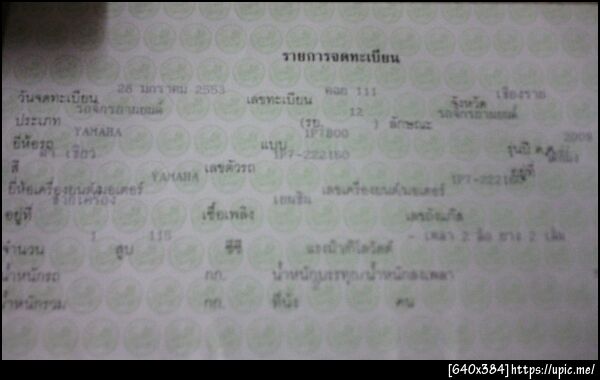 รายการจดทะเบียน
วันจดทะเบียน 28 มกราคม 2553 เลขทะเบียน 111 จังหวัด เชียงราย
ประเภท รถจักรยานยนต์ (รย. 12 ) ลักษณะ รถจักรยานยนต์
ยี่ห้อรถ YAMAHA แบบ 1P7B00 รุ่นปี ค.ศ. 2009
สี ดำ เขียว เลขตัวรถ อยู่ที่
ยี่ห้อเครื่องยนต์/มอเตอร์ YAMAHA เลขเครื่องยนต์/มอเตอร์
อยู่ที่ เชื้อเพลิง เบนซิน เลขถังแก๊ส
จำนวน 1 สูบ 115 ซีซี แรงม้า/กิโลวัตต์ - เพลา 2 ล้อ ยาง 2 เส้น
น้ำหนักรถ กก. น้ำหนักบรรทุก/น้ำหนักลงเพลา
น้ำหนักรวม กก. ที่นั่ง คน
[640x384]https://upic.me/